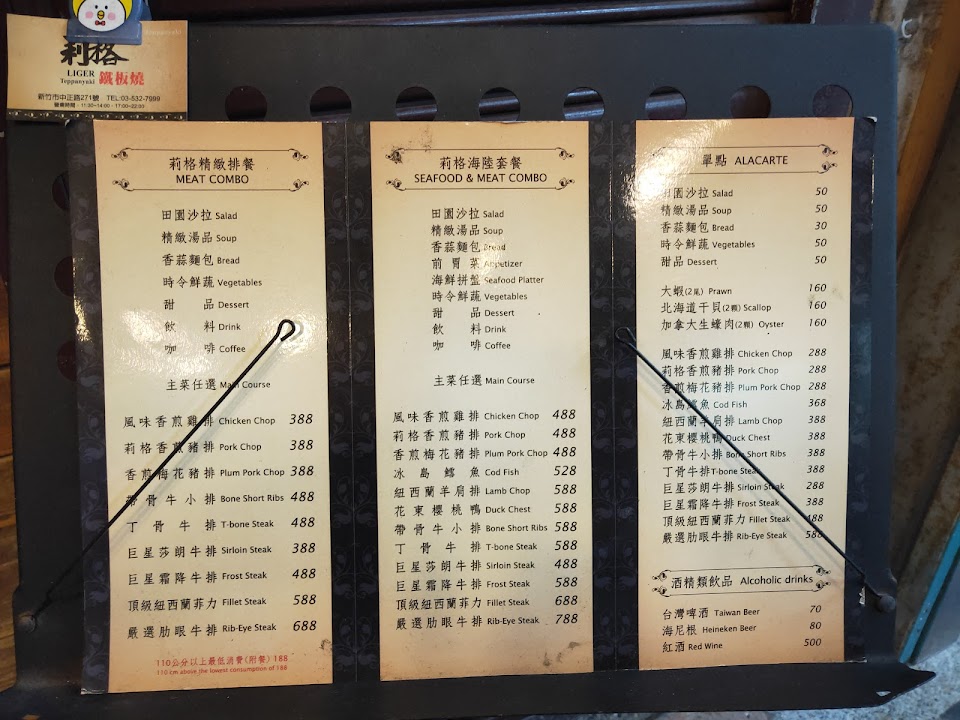 莉格
LIGER
Teppanyaki 鐵板燒
新竹市中正路271號 TEL:03-532-7999
營業時間：11:30~14:00、17:00~22:00
莉格精緻排餐
MEAT COMBO
田園沙拉 Salad
精緻湯品 Soup
香蒜麵包 Bread
時令鮮蔬 Vegetables
甜品 Dessert
飲料 Drink
咖啡 Coffee
主菜任選 Main Course
風味香煎雞排 Chicken Chop 388
莉格香煎豬排 Pork Chop 388
香煎梅花豬排 Plum Pork Chop 388
帶骨牛小排 Bone Short Ribs 488
丁骨牛排 T-bone Steak 488
巨星莎朗牛排 Sirloin Steak 388
巨星霜降牛排 Frost Steak 488
頂級紐西蘭菲力 Fillet Steak 488
嚴選肋眼牛排 Rib-Eye Steak 688
110公分以上最低消費(附餐)188
110 cm above the lowest consumption of 188
莉格海陸套餐
SEAFOOD & MEAT COMBO
田園沙拉 Salad
精緻湯品 Soup
香蒜麵包 Bread
前胃菜 Appetizer
海鮮拼盤 Seafood Platter
時令鮮蔬 Vegetables
甜品 Dessert
飲料 Drink
咖啡 Coffee
主菜任選 Main Course
風味香煎雞排 Chicken Chop 488
莉格香煎豬排 Pork Chop 488
香煎梅花豬排 Plum Pork Chop 488
冰島鱈魚 Cod Fish 528
紐西蘭羊肩排 Lamb Chop 588
花東櫻桃鴨 Duck Chest 588
帶骨牛小排 Bone Short Ribs 588
丁骨牛排 T-bone Steak 588
巨星莎朗牛排 Sirloin Steak 488
巨星霜降牛排 Frost Steak 588
頂級紐西蘭菲力 Fillet Steak 688
嚴選肋眼牛排 Rib-Eye Steak 788
單點 ALACARTE
田園沙拉 Salad 50
精緻湯品 Soup 50
香蒜麵包 Bread 30
時令鮮蔬 Vegetables 50
甜品 Dessert 50
大蝦(2尾) Prawn 160
北海道干貝(2顆) Scallop 160
加拿大生蠔肉(2顆) Oyster 160
風味香煎雞排 Chicken Chop 288
莉格香煎豬排 Pork Chop 288
香煎梅花豬排 Plum Pork Chop 288
冰島鱈魚 Cod Fish 368
紐西蘭羊肩排 Lamb Chop 388
花東櫻桃鴨 Duck Chest 388
帶骨牛小排 Bone Short Ribs 388
丁骨牛排 T-bone Steak 388
巨星莎朗牛排 Sirloin Steak 288
巨星霜降牛排 Frost Steak 388
頂級紐西蘭菲力 Fillet Steak 488
嚴選肋眼牛排 Rib-Eye Steak 588
酒精類飲品 Alcoholic drinks
台灣啤酒 Taiwan Beer 70
海尼根 Heineken Beer 80
紅酒 Red Wine 500